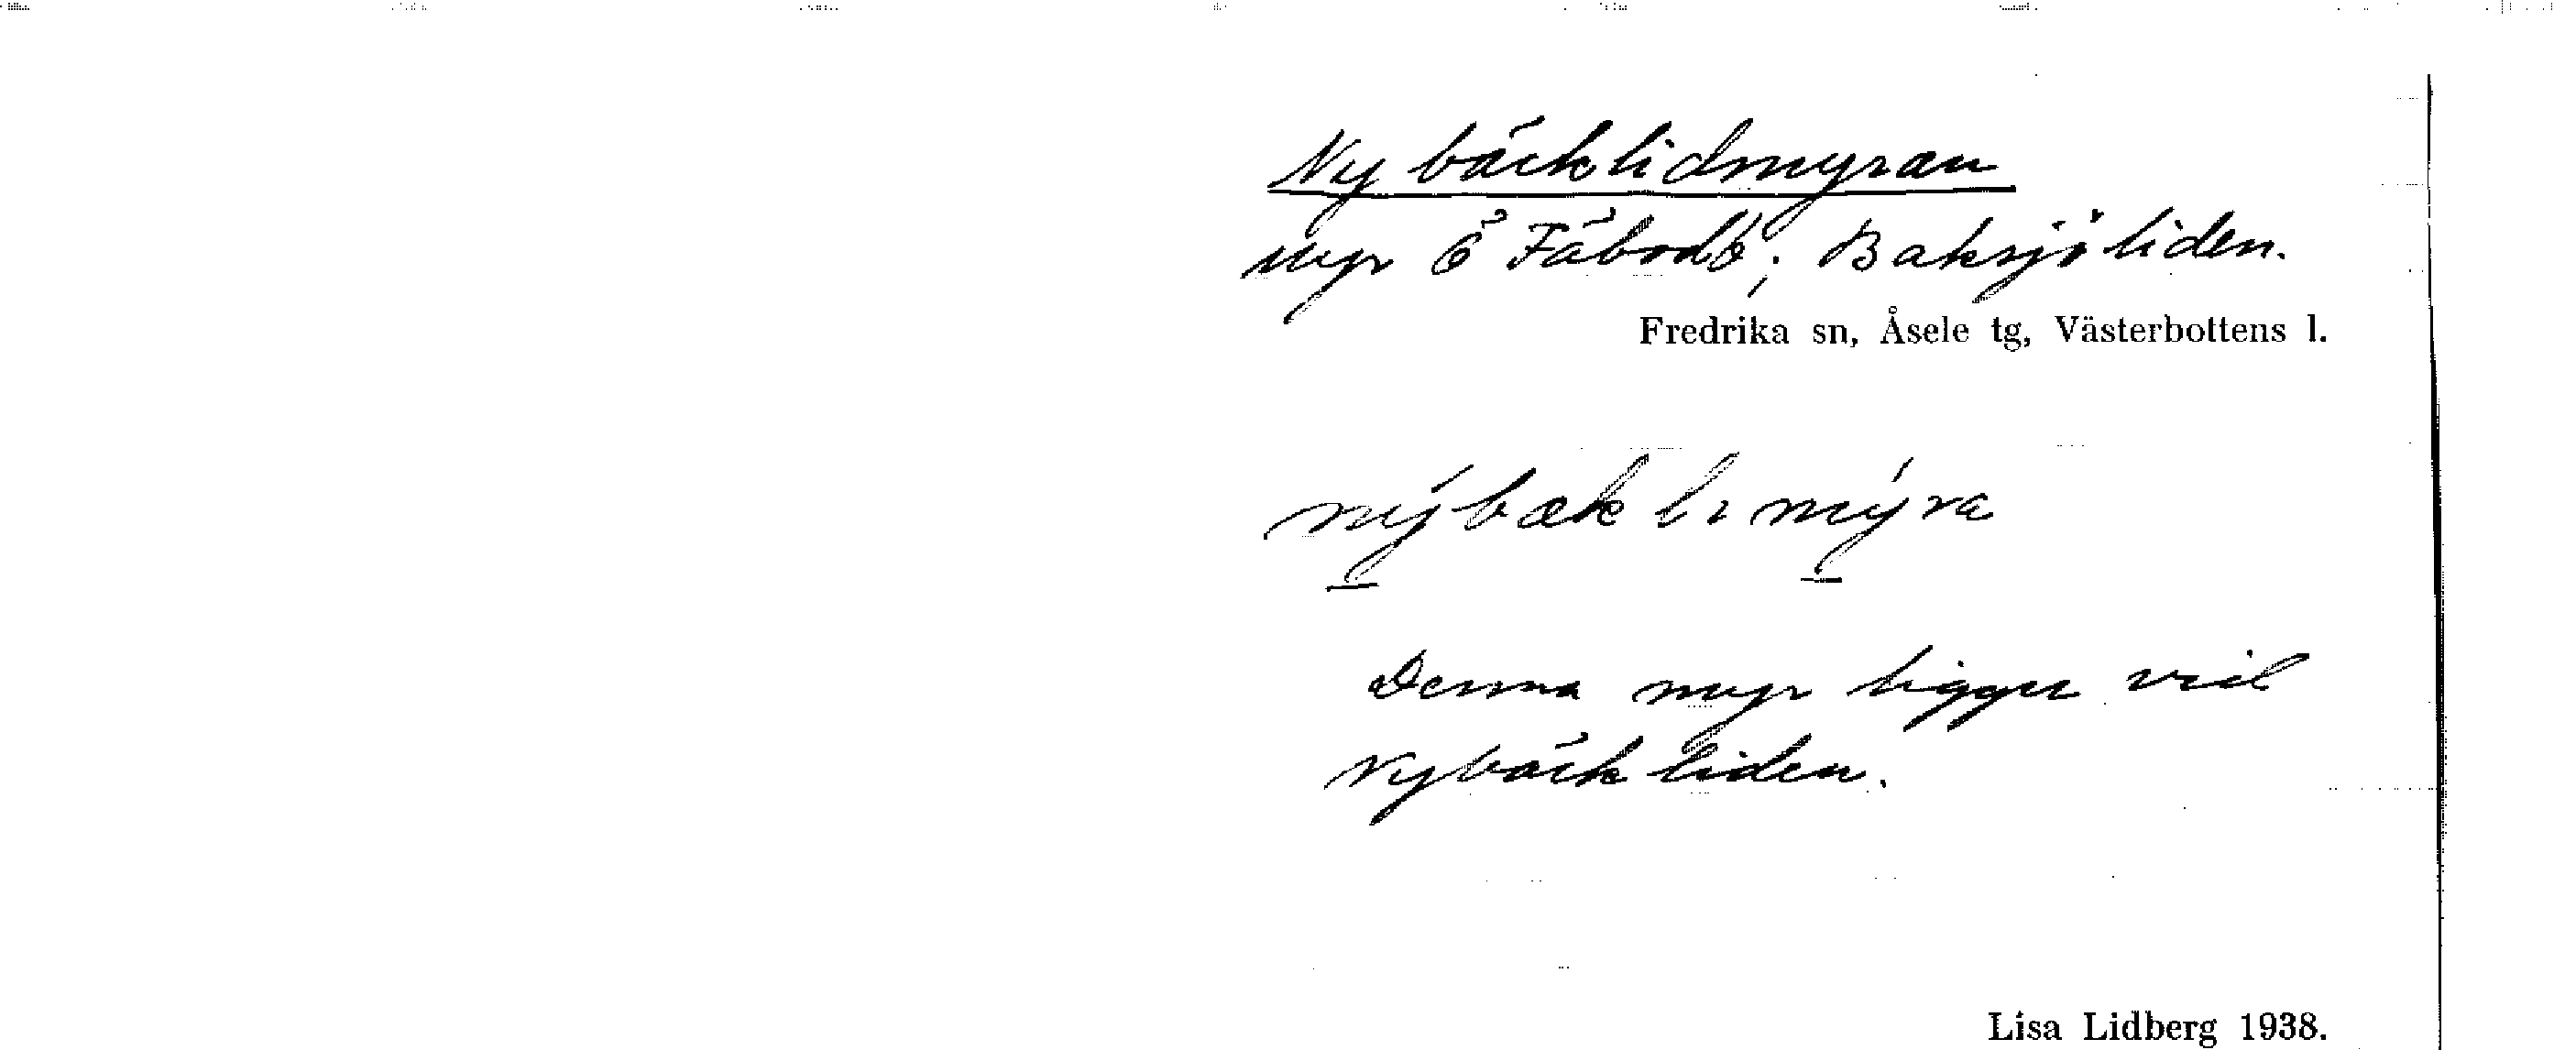 Nybäcklidmyran
myr Ö Fäbodb; Baksjöliden.
Fredrika sn, Åsele tg, Västerbottens l.
nýbæklımýra
Denna myr ligger vid
Nybäckliden.
Lisa Lidberg 1938.